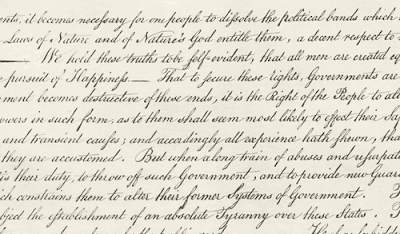 ents, it becomes necessary for one people to dissolve the political bands which
Laws of Nature and of Nature's God entitle them, a decent respect to
We hold these truths to be self-evident, that all men are created eq
pursuit of Happiness.— That to secure these rights, Governments are
ment becomes destructive of these ends, it is the Right of the People to alt
owers in such form, as to them shall seem most likely to effect their Saf
and transient causes; and accordingly all experience hath shewn, tha
they are accustomed. But when a long train of abuses and usurpatio
is their duty, to throw off such Government, and to provide new Guar
ich constrains them to alter their former Systems of Government.
bject the establishment of an absolute Tyranny over these States.